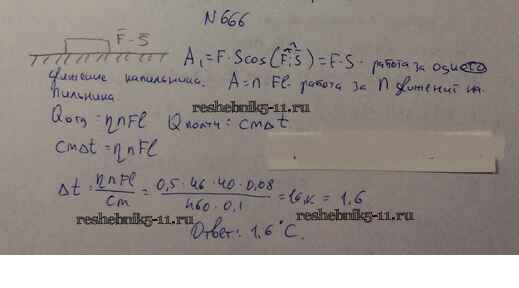 N 666
F̄ - S̄
A₁ = F · S cos(F̄;S̄) = F·S - работа за одно
движение напильника. A = n·Fl - работа за n движений на-
пильника.
reshebnik5-11.ru
Qотд = ηnFl Qполуч = cmΔt
cmΔt = ηnFl
Δt = ηnFl / cm = 0,5 · 46 · 40 · 0,08 / 460 · 0,1 = 1,6 = 1,6
reshebnik5-11.ru reshebnik5-11.ru
Ответ: 1,6°C.